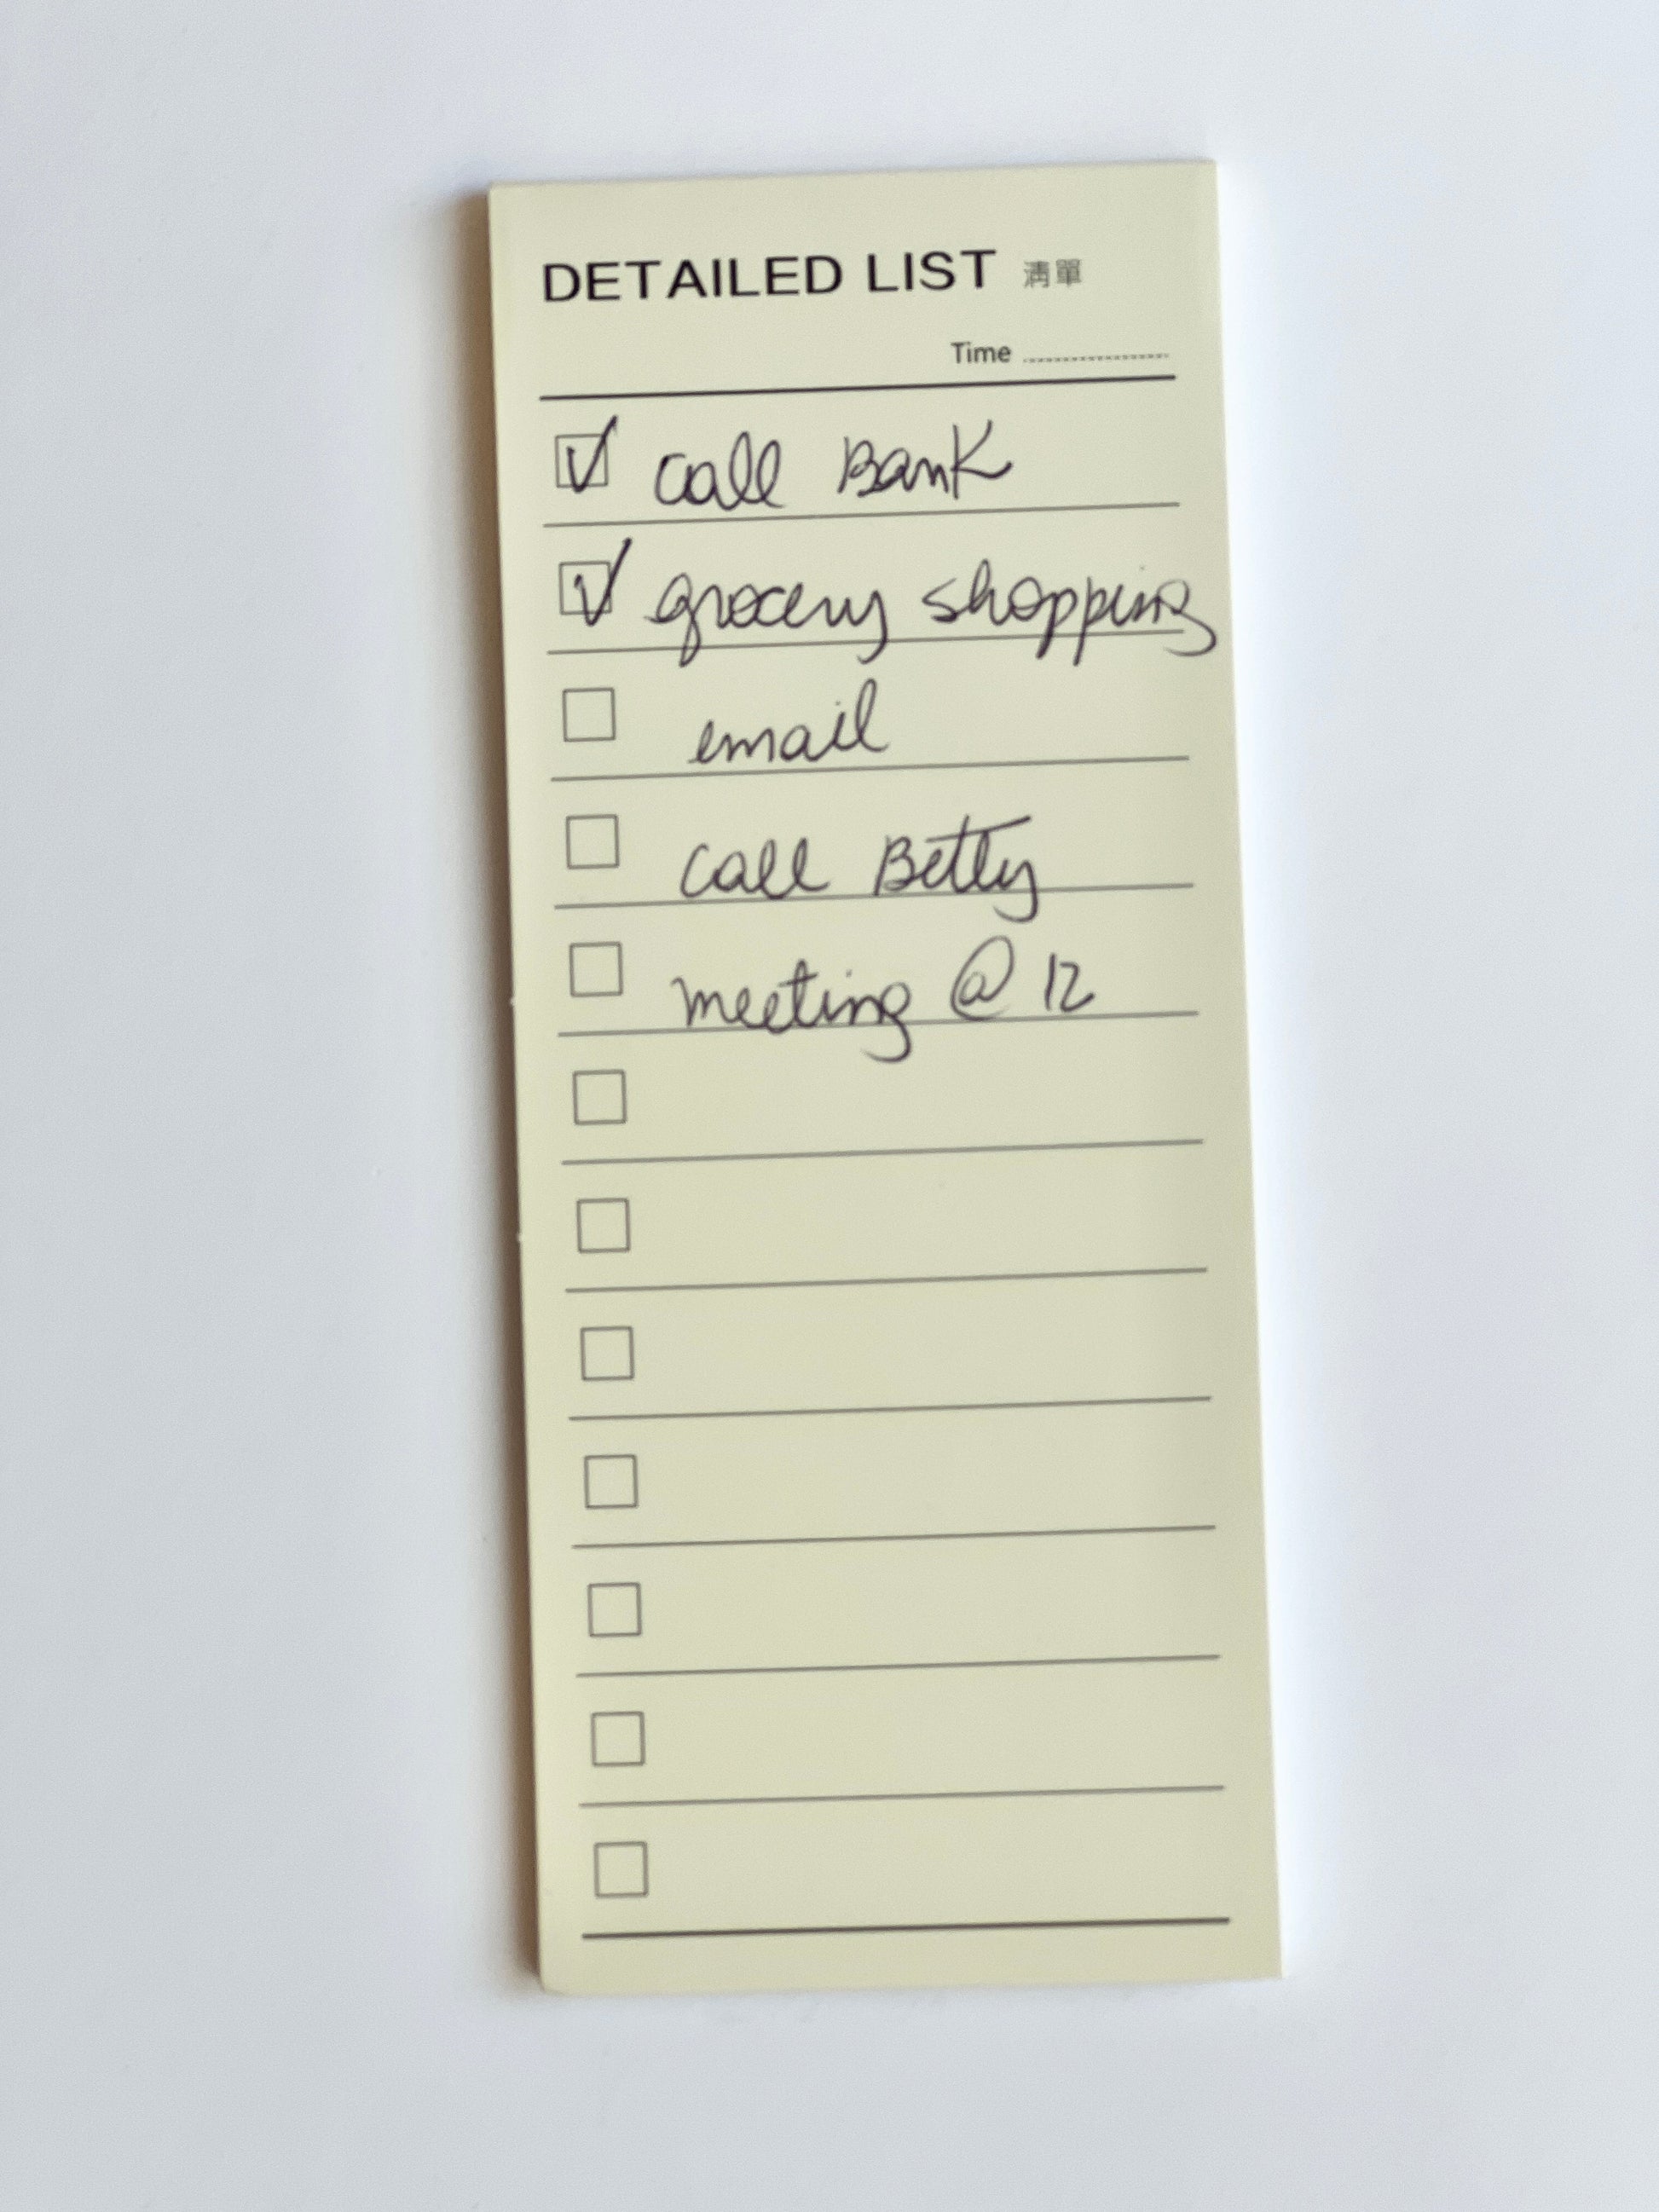 DETAILED LIST 清單
Time
call Bank
grocery shopping
email
call Betty
meeting @ 12